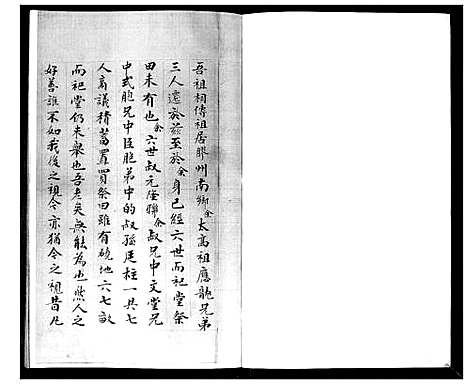 吾祖相傳祖居膠州南鄉余太高祖應龍兄弟
三人遷於茲至於余身已經六世而祀堂祭
田未有也余六世叔元隆聯余叔兄中文堂兄
中式胞兄中臣胞弟中的叔孫廷柱一共七
人商議積蓄置買祭田雖有砘地六七畝
而祀堂仍未舉也吾老矣無能為也然人之
好善誰不如我後之視今亦猶今之視昔凡